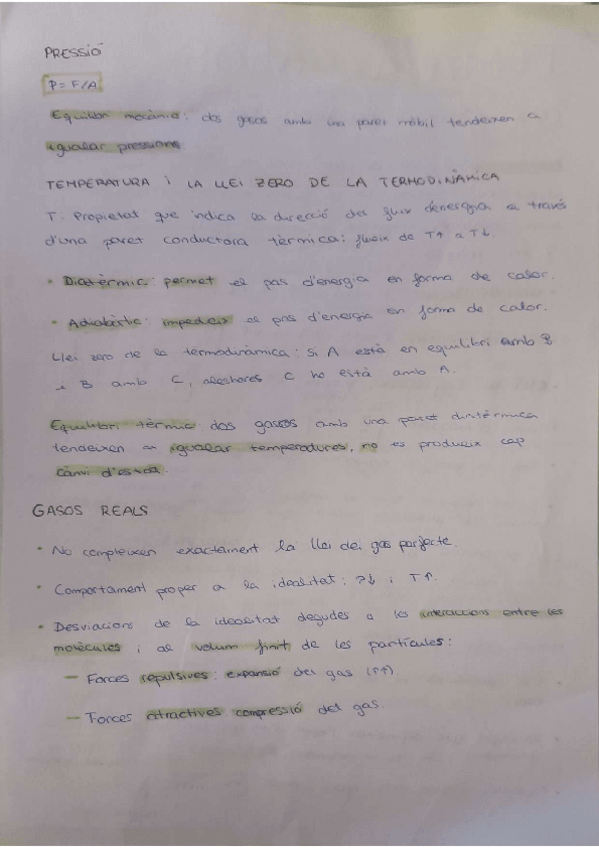 PRESSIÓ
P = F/A
Equilibri mecànic: dos gasos amb una paret mòbil tendeixen a
igualar pressions
TEMPERATURA i LA LLEI ZERO DE LA TERMODINÀMICA
T: Propietat que indica la direcció del flux d'energia a través
d'una paret conductora tèrmica: flueix de T↑ a T↓.
• Diatèrmic: permet el pas d'energia en forma de calor.
• Adiabàtic: impedeix el pas d'energia en forma de calor.
Llei zero de la termodinàmica: Si A està en equilibri amb B
i B amb C, aleshores C ho està amb A.
Equilibri tèrmic dos gasos amb una paret diatèrmica
tendeixen a igualar temperatures, no es produeix cap
canvi d'estat.
GASOS REALS
• No compleixen exactament la llei del gas perfecte.
• Comportament proper a la idealitat: P↓ i T↑.
• Desviacions de la idealitat degudes a les interaccions entre les
molècules i al volum finit de les partícules:
– Forces repulsives: expansió del gas (P↑)
– Forces atractives compressió del gas.